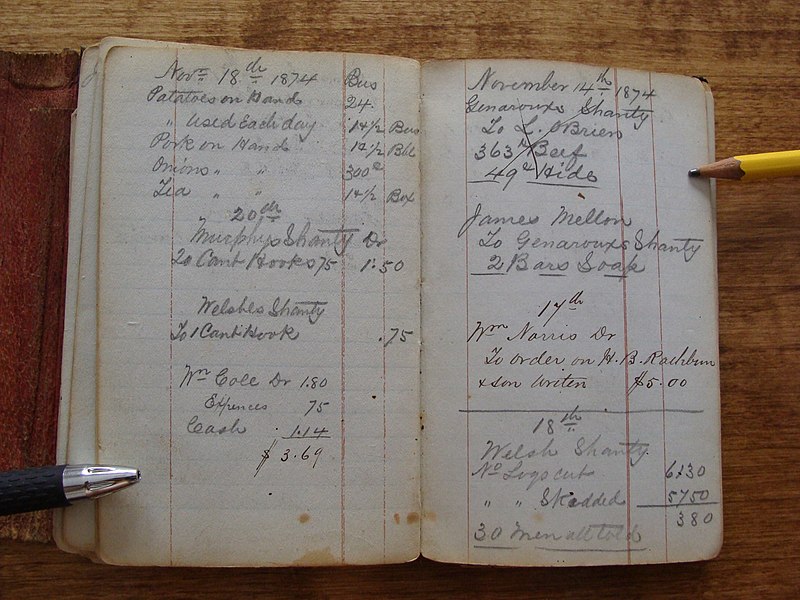 Novr 18th 1874 Bus
Patatoes on Hand 24
" Used Each day 1 1/2 Bus
Pork on Hand 1 1/2 Bbl
Onions " " 300
Tea " " 1 1/2 Box
20th
Murphys Shanty Dr
To Cant Hooks 75 1.50
Welshes Shanty
To 1 Cant Hook .75
Wm Cole Dr 1.80
Expences 75
Cash 1.14
$ 3.69
November 14th 1874
Genarouxs Shanty
To L. OBrien
363 Beef
49 Hide
James Mellon
To Genarouxs Shanty
2 Bars Soap
17th
Wm Norris Dr
To order on H. B. Rathbun
& son writen $5.00
18th
Welsh Shanty
No Logs cut 6130
" " Skidded 5750
380
30 Men all told